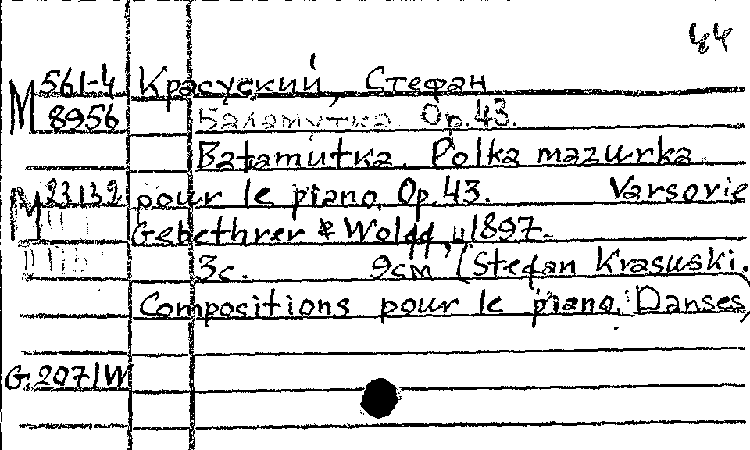 44
М 561-4 Красуский, Стефан
8956 Баламутка Op. 43.
Bałamutka. Polka mazurka
М 23132 pour le piano. Op. 43. Varsovie
Gebethner & Wolff, 1897.
3c. 9см (Stefan Krasuski.
Compositions pour le piano. Danses,
G. 207/W